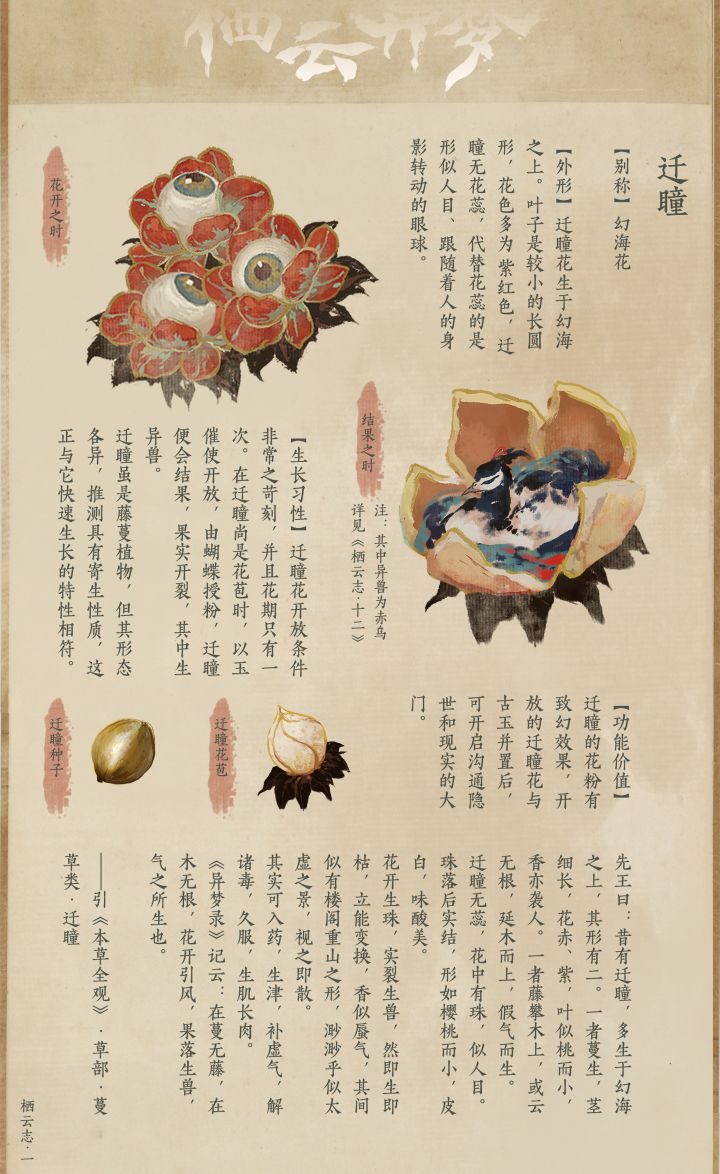 栖云开梦
迁瞳
【别称】幻海花
【外形】迁瞳花生于幻海
之上。叶子是较小的长圆
形，花色多为紫红色，迁
瞳无花蕊，代替花蕊的是
形似人目、跟随着人的身
影转动的眼球。
花开之时
结果之时
注：其中异兽为赤乌
详见《栖云志·十二》
【生长习性】迁瞳花开放条件
非常之苛刻，并且花期只有一
次。在迁瞳尚是花苞时，以玉
催使开放，由蝴蝶授粉，迁瞳
便会结果，果实开裂，其中生
异兽。
迁瞳虽是藤蔓植物，但其形态
各异，推测具有寄生性质，这
正与它快速生长的特性相符。
【功能价值】
迁瞳的花粉有
致幻效果，开
放的迁瞳花与
古玉并置后，
可开启沟通隐
世和现实的大
门。
迁瞳花苞
迁瞳种子
先王曰：昔有迁瞳，多生于幻海
之上，其形有二。一者蔓生，茎
细长，花赤、紫，叶似桃而小，
香亦袭人。一者藤攀木上，或云
无根，延木而上，假气而生。
迁瞳无蕊，花中有珠，似人目。
珠落后实结，形如樱桃而小，皮
白，味酸美。
花开生珠，实裂生兽，然即生即
枯，立能变换，香似蜃气，其间
似有楼阁重山之形，渺渺乎似太
虚之景，视之即散。
其实可入药，生津，补虚气，解
诸毒，久服，生肌长肉。
《异梦录》记云：在蔓无藤，在
木无根，花开引风，果落生兽，
气之所生也。
——引《本草全观》·草部·蔓
草类·迁瞳
栖云志·一